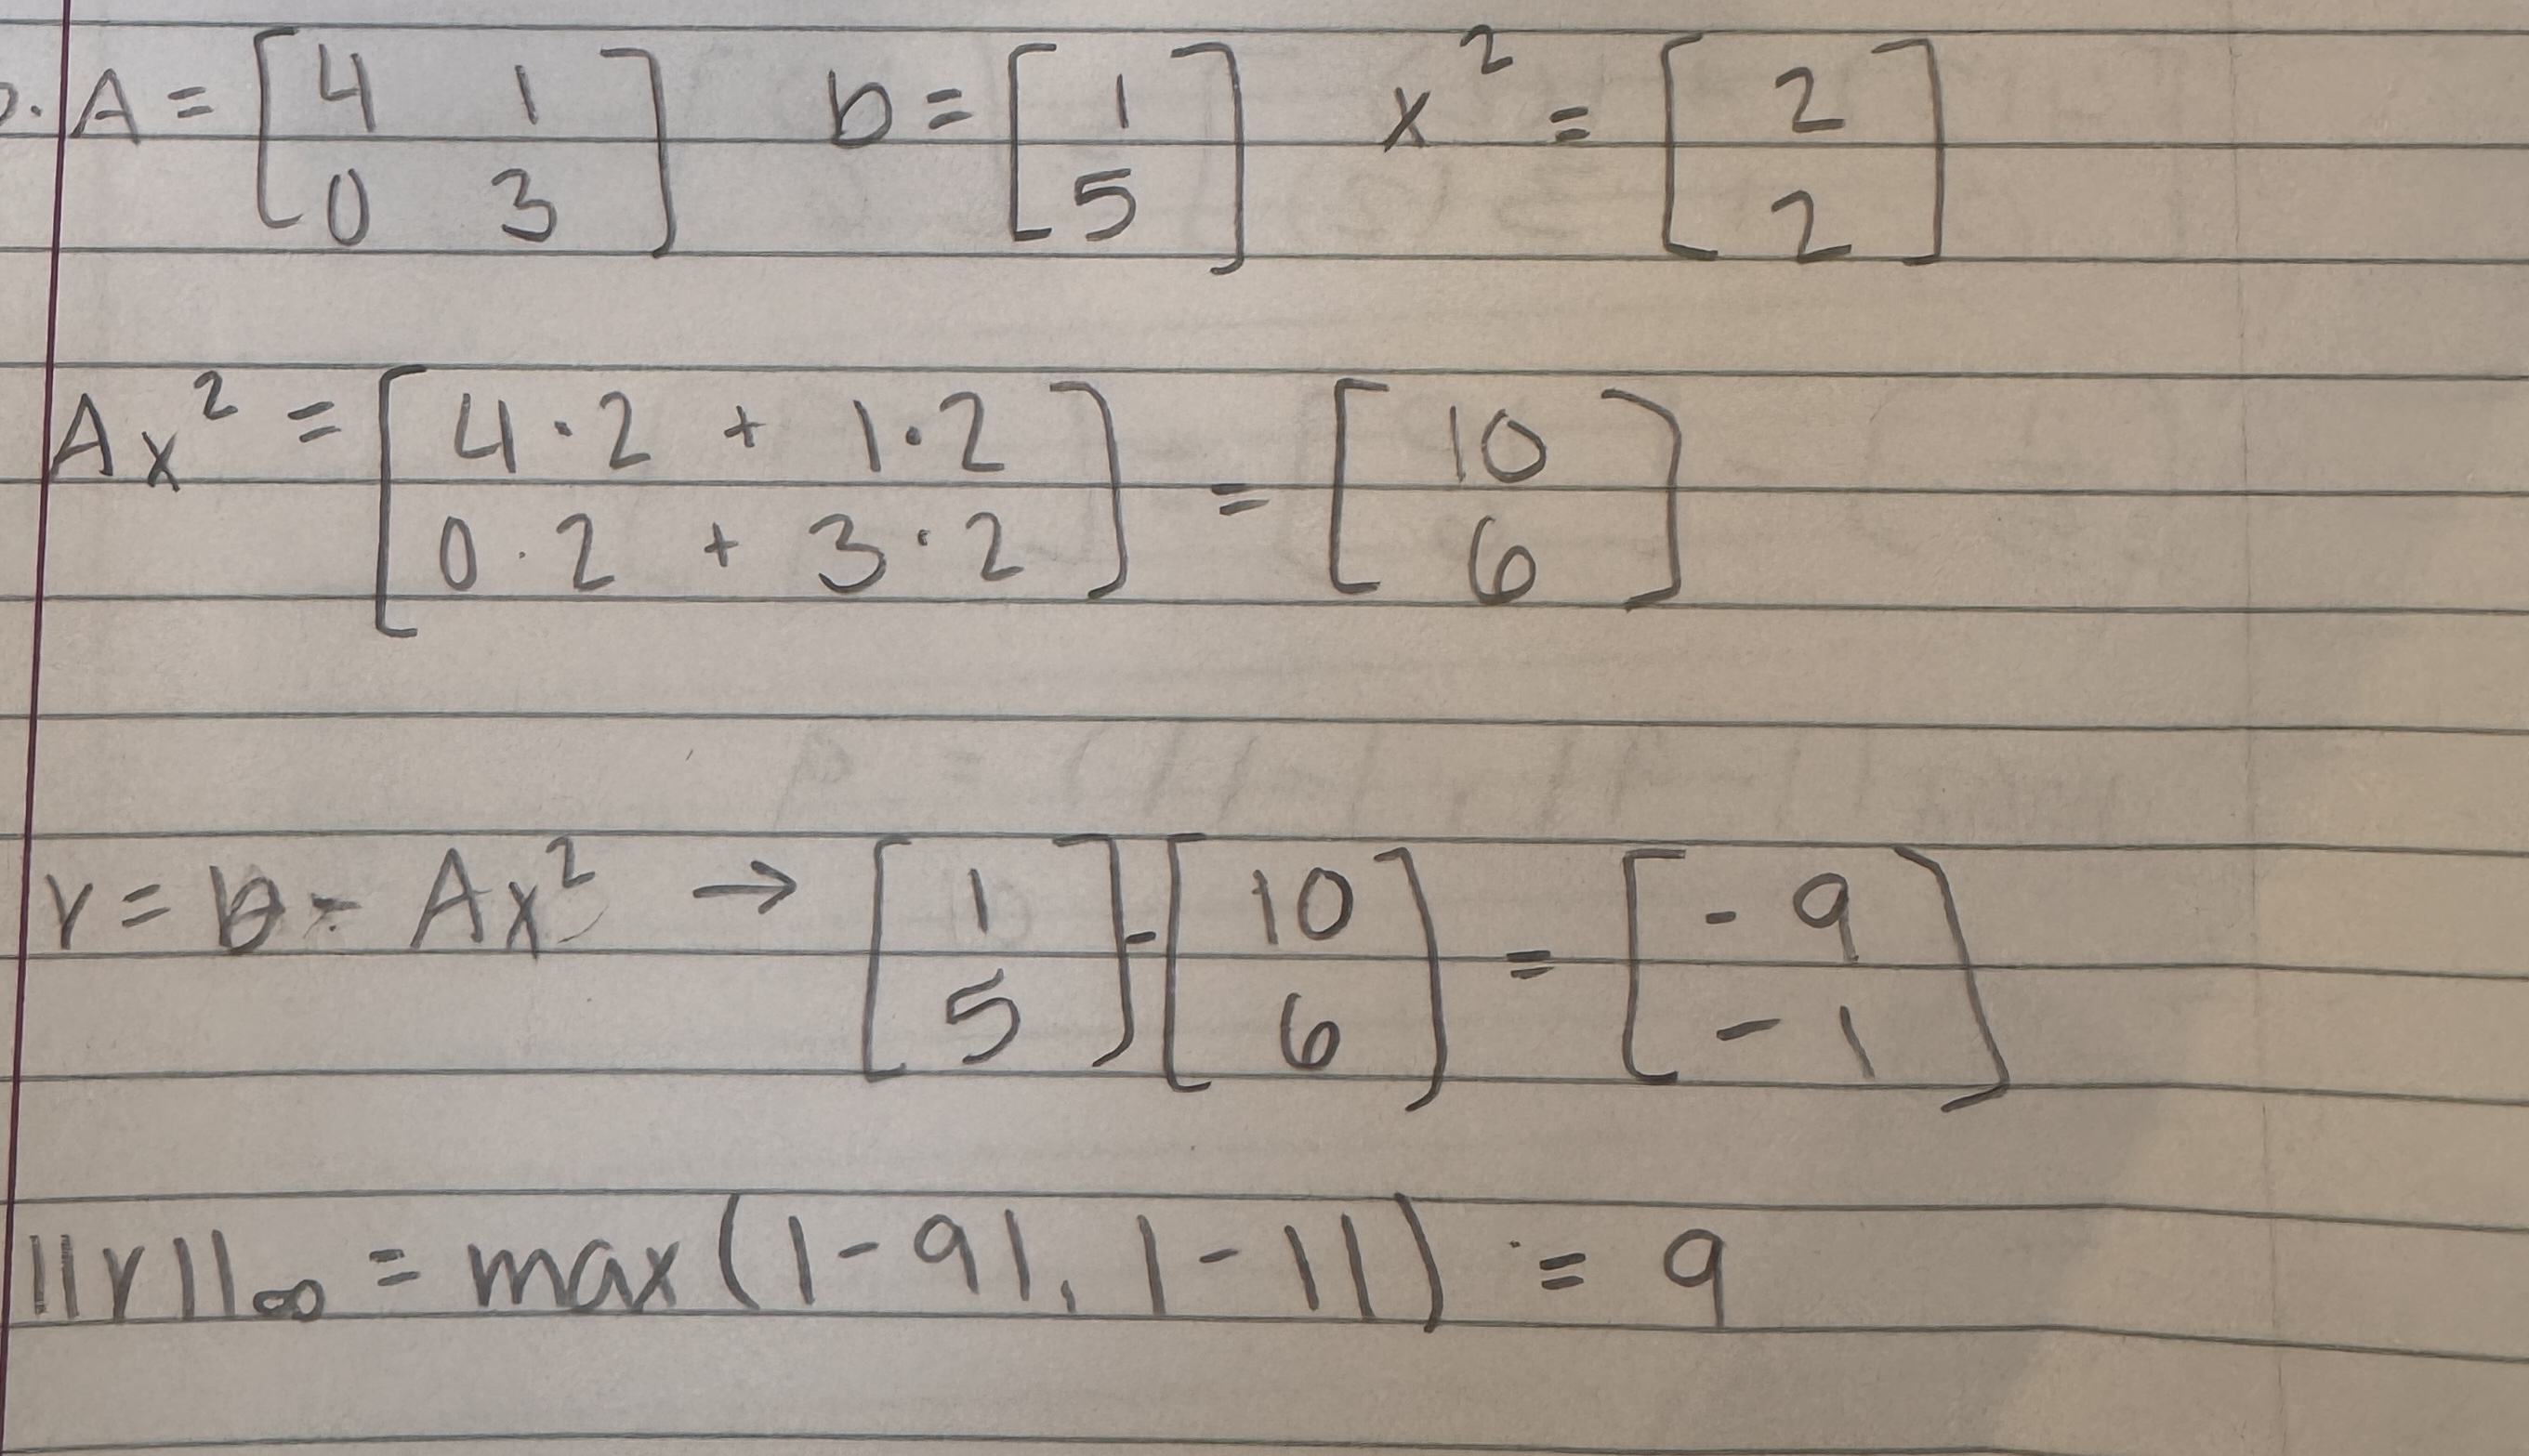 A = [4 1; 0 3] b = [1; 5] x² = [2; 2]
Ax² = [4·2 + 1·2; 0·2 + 3·2] = [10; 6]
r = b - Ax² → [1; 5] - [10; 6] = [-9; -1]
||r||∞ = max(|-9|, |-1|) = 9